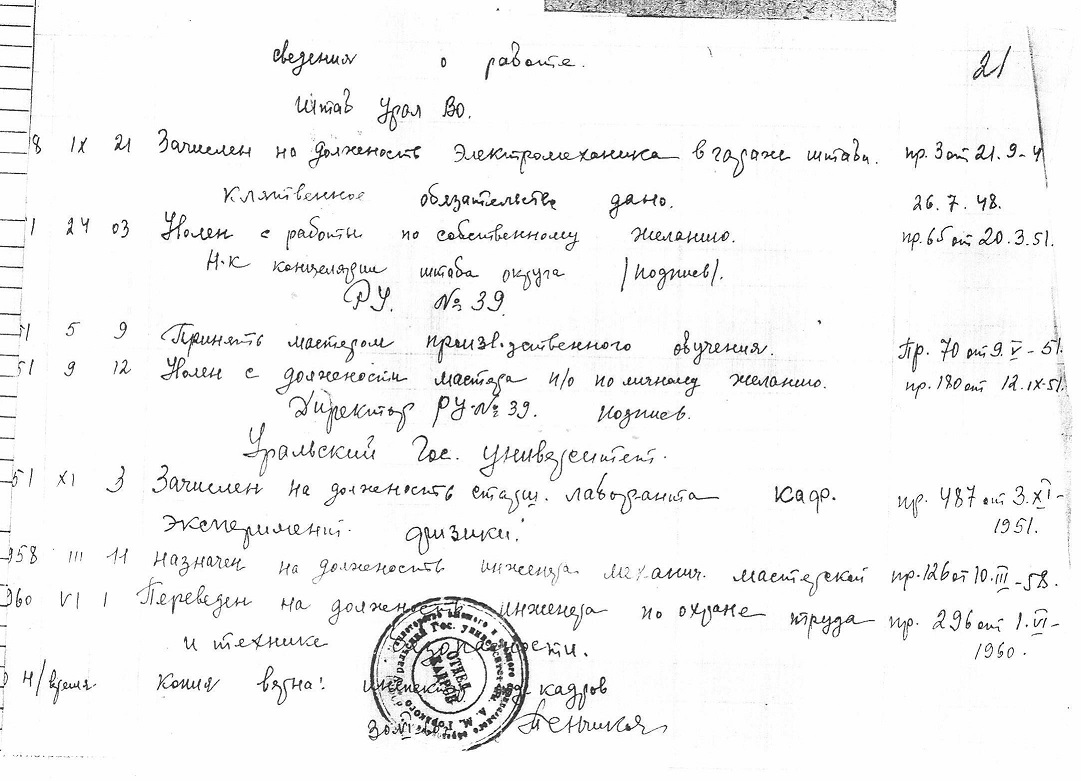 сведения о работе. 21
Штаб Урал ВО.
8 IX 21 Зачислен на должность электромеханика в гараже штаба. пр. 3 от 21.9-4
Клятвенное обязательство дано. 26.7.48.
1 24 03 Уволен с работы по собственному желанию. пр. 65 от 20.3.51.
Н-к канцелярии штаба округа /подпись/.
РУ. № 39.
51 5 9 Принять мастером производственного обучения. Пр. 70 от 9.V-51.
51 9 12 Уволен с должности мастера п/о по личному желанию. пр. 180 от 12.IX.51.
Директор РУ-№ 39. подпись.
Уральский Гос. университет.
51 XI 3 Зачислен на должность старш. лаборанта кафр. пр. 487 от 3.XI-
эксперимент. физики. 1951.
958 III 11 назначен на должность инженера механич. мастерской пр. 126 от 10.III-58.
960 VI 1 Переведен на должность инженера по охране труда пр. 296 от 1.VI-
и технике безопасности. 1960.
Н/время Копия верна: инспектор отд. кадров
ОТДЕЛ КАДРОВ
Уральский Гос. университет им. А. М. Горького